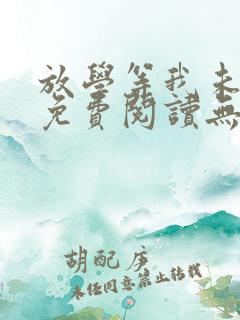 放學等我未
免費閱讀無
胡配序
未经同意禁止转载